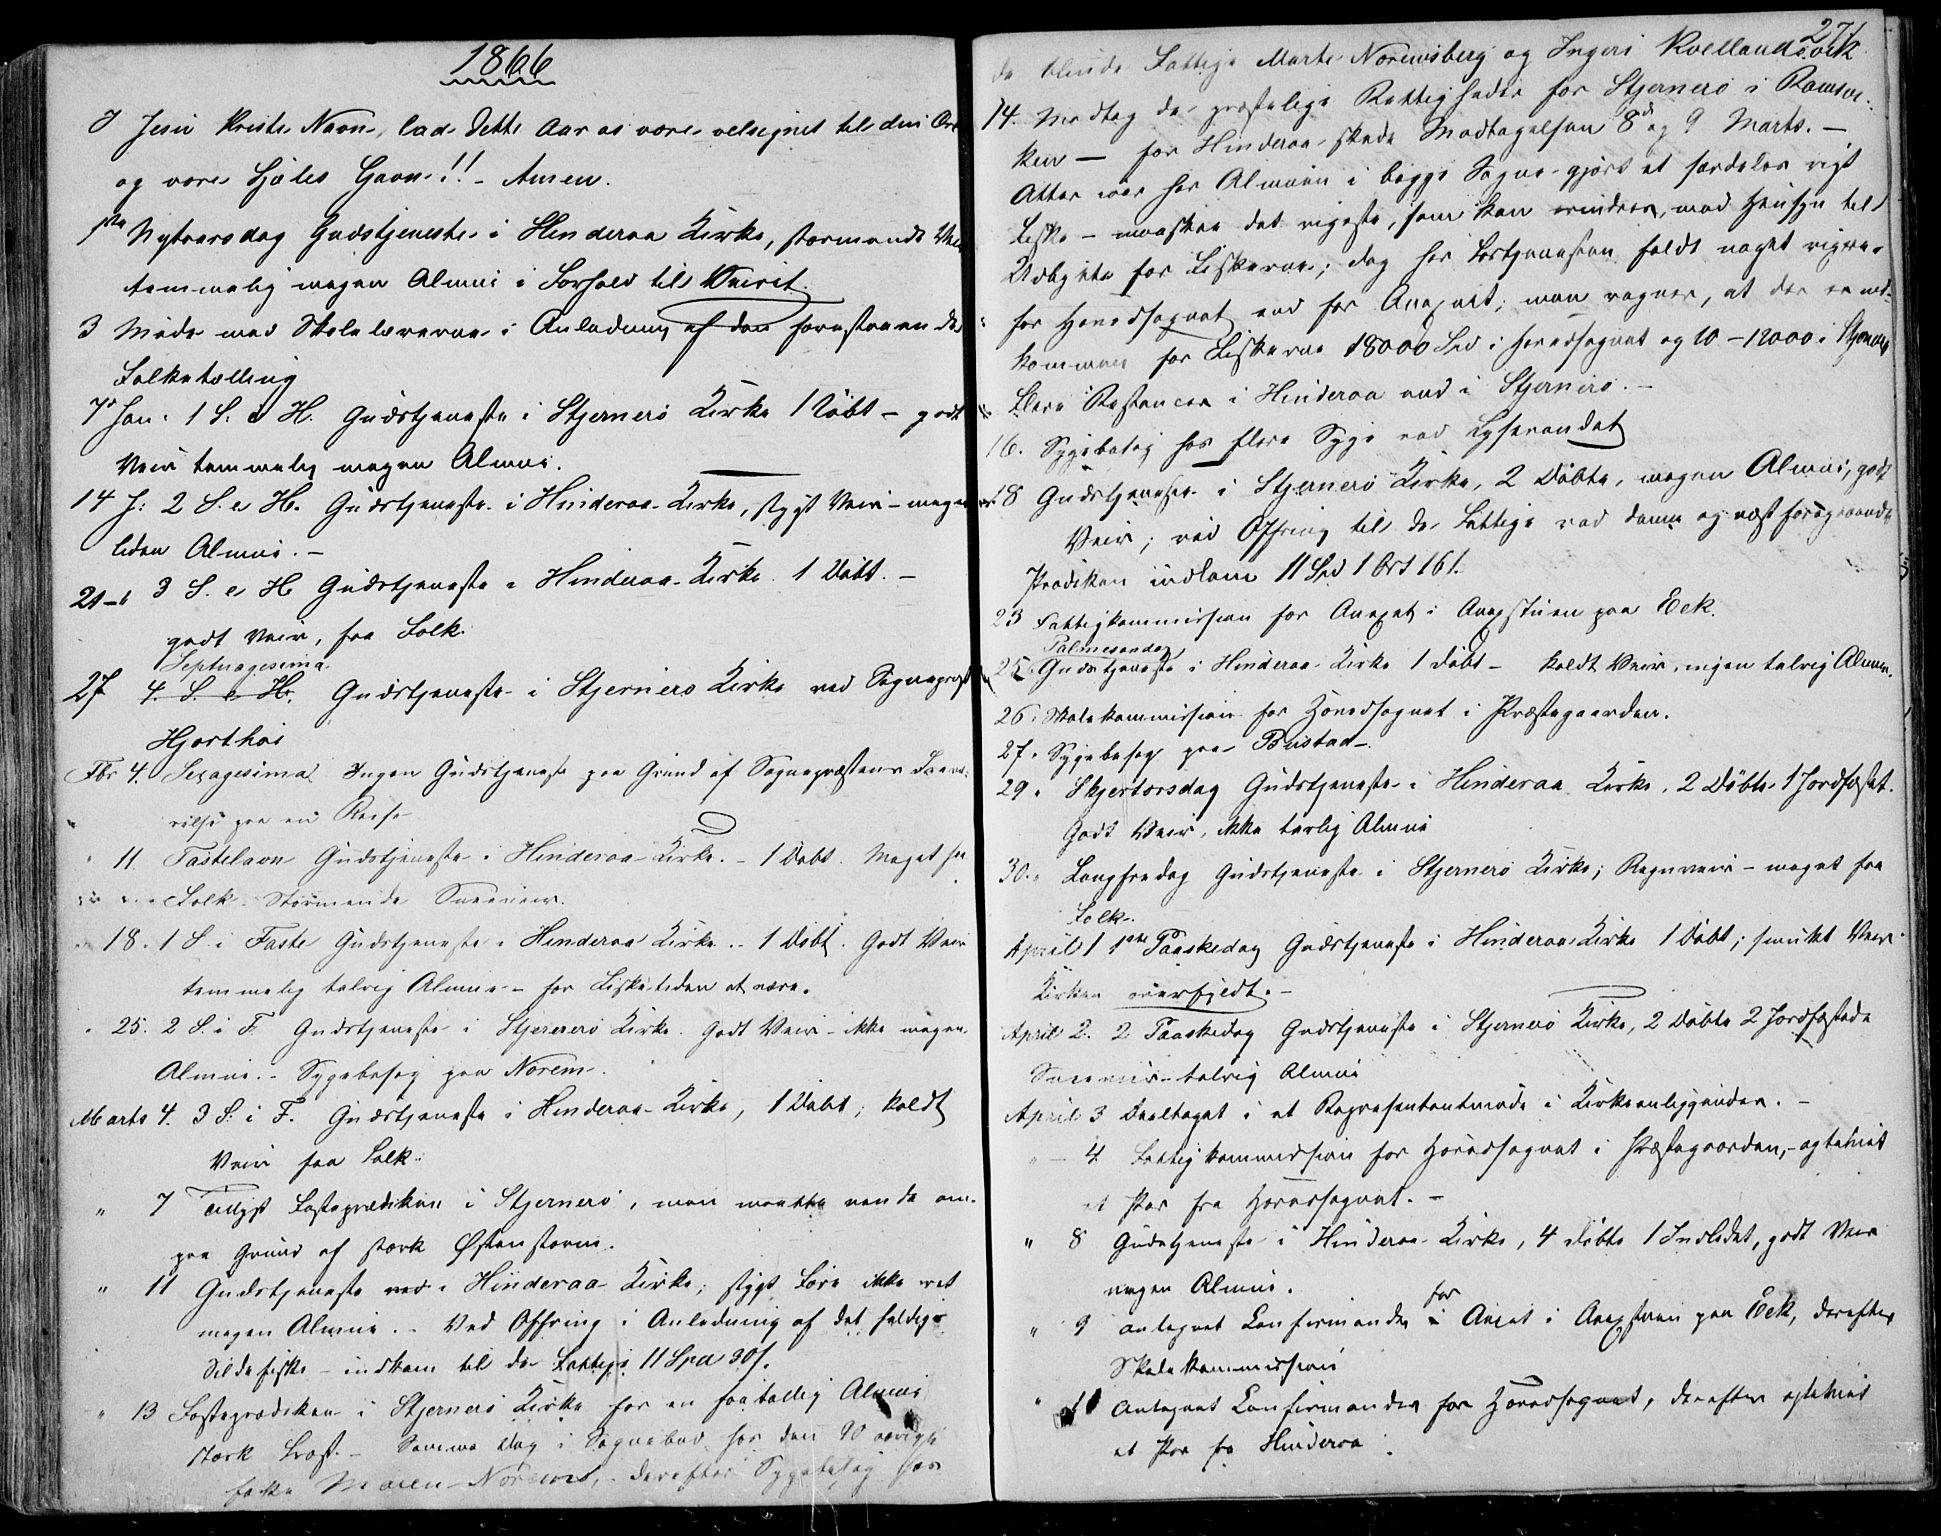 1866
I Jesu Kristi Navn, lad dette Aar os være velsignet til din Ære
og vore Sjæles Gavn!! - Amen.
1ste Nytaarsdag Gudstjeneste i Hinderaa Kirke, stormende Veir
temmelig megen Almue i Forhold til Veiret.
3 Møde med Skolelærerne i Anledning af den forestaaende
Folketælling
7de Jan. 1 S. e H. Gudstjeneste i Stjernerø Kirke 1 Døbt - godt
Veir temmelig megen Almue.
14 J: 2 S. e H. Gudstjeneste i Hinderaa Kirke, stygt Veir - meget
liden Almue. -
21 - " 3 S. e H Gudstjeneste i Hinderaa Kirke. 1 Døbt. -
godt Veir, faa Folk.
Septuagesima.
27 4. S. e H. Gudstjeneste i Stjernerø Kirke ved Sognepræst
Hjorthøi
Fbr 4. Sexagesima Ingen Gudstjeneste paa Grund af Sognepræstens Fravæ-
relse paa en Reise
" 11 Fastelavn Gudstjeneste i Hinderaa Kirke. - 1 Døbt. Meget faa
Folk. Stormende Sneeveir.
" 18. 1 S. i Faste Gudstjeneste i Hinderaa Kirke. - 1 Døbt. Godt Veir
temmelig talrig Almue - for Fisketiden at være.
" 25. 2 S. i F. Gudstjeneste i Stjernerø Kirke. Godt Veir - ikke megen
Almue. - Sygebesøg paa Norem.
Marts 4. 3 S. i F. Gudstjeneste i Hinderaa Kirke, 1 Døbt, koldt
Veir faa Folk.
" 7 Tillyst Fasteprædiken i Stjernerø, man maatte vende om
paa Grund af stærk Østenstorm.
" 11 Gudstjeneste ved i Hinderaa Kirke; stygt Føre ikke ret
megen Almue. - Ved Offring i Anledning af det heldige
Sildefiske - indkom til de Fattige 11 Spd 30 s.
" 13 Fasteprædiken i Stjernerø Kirke for en faatallig Almue
stærk Frost. - Samme Dag i Sognebud hos den 90 aarige
Maren Norem, - derefter Sygebesøg hos
271
de blinde Fattige Marte Noremsberg og Ingeri Kvellandsvik
14. Modtog de præstelige Rettigheder for Stjernerø i Ramsvi-
ken - for Hinderaa skede Modtagelsen 8de og 9 Marts. -
Atter var her Almuen i begge Sogne gjort et særdeles rigt
Fiske - maaskee det rigeste, som kan erindres, med Hensyn til
Udbytte for Fiskerne; dog her Fortjenesten faldt noget rigere
for Hovedsognet end for Annexet; man regner, at der er ind-
kommen for Fiskerne 18000 Spd i Hovedsognet og 10 - 12000 i Stjernerø
Flere Restancer i Hinderaa end i Stjernerø. -
16. Sygebesøg hos flere Syge ved
18 Gudstjeneste i Stjernerø Kirke, 2 Døbte, megen Almue, godt
Veir; ved Offring til de Fattige ved denne og næst foregaaende
Prædiken indkom 11 Spd 1 Ort 16 s.
23 Fattigkommission for Annexet i Annexstuen paa Eek.
Palmesøndag
25 Gudstjeneste i Hinderaa Kirke 1 Døbt - koldt Veir, ingen talrig Almue.
26. Skolekommission for Hovedsognet i Præstegaarden.
27. Sygebesøg paa Bustad -
29 " Skjertorsdag Gudstjeneste i Hinderaa Kirke, 2 Døbte 1 Jordfæstet.
Godt Veir, ikke talrig Almue
30. " Langfredag Gudstjeneste i Stjernerø Kirke; Regnveir - meget faa
Folk.
April 1 1ste Paaskedag Gudstjeneste i Hinderaa Kirke 1 Døbt; smukt Veir
Kirken overfyldt. -
April 2. 2 Paaskedag Gudstjeneste i Stjernerø Kirke, 2 Døbte 2 Jordfæstede
Sneeveir - talrig Almue
April 3 Deeltaget i et Repræsentantmøde i Kirkeanliggender. -
" - 4 Fattigkommission for Hovedsognet i Præstegaarden, - ægteviet
et Par fra Hovedsognet. -
" 8 Gudstjeneste i Hinderaa Kirke, 4 døbte 1 Indledet, godt Veir
megen Almue.
for
" 9 antegnet Confirmander i Anexet i Anexstuen paa Eek, derefter
Skolekommission
" 10 Antegnet Confirmander for Hovedsognet, derefter ægteviet
et Par fra Hinderaa.